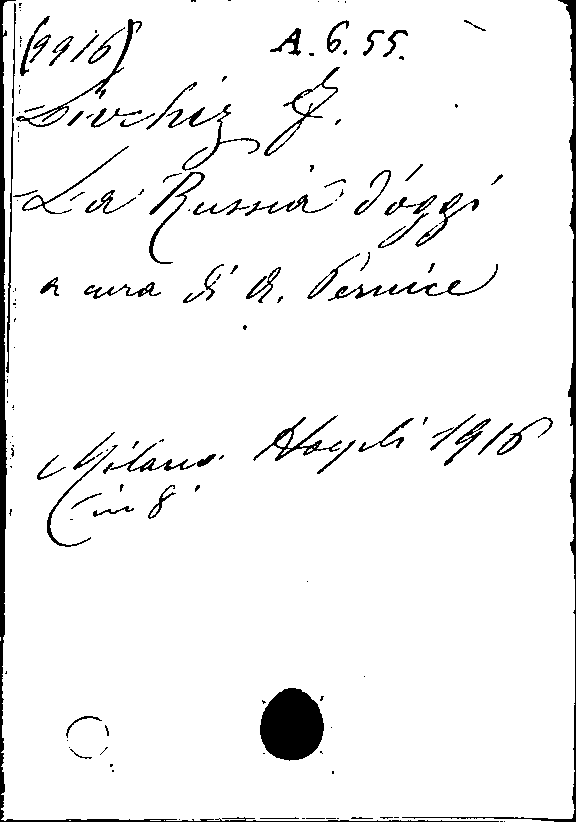 (9916) A. 6. 55.
Divchiz G.
La Russia d'oggi
a cura di A. Pernice
Milano. Hoepli 1916
in 8°